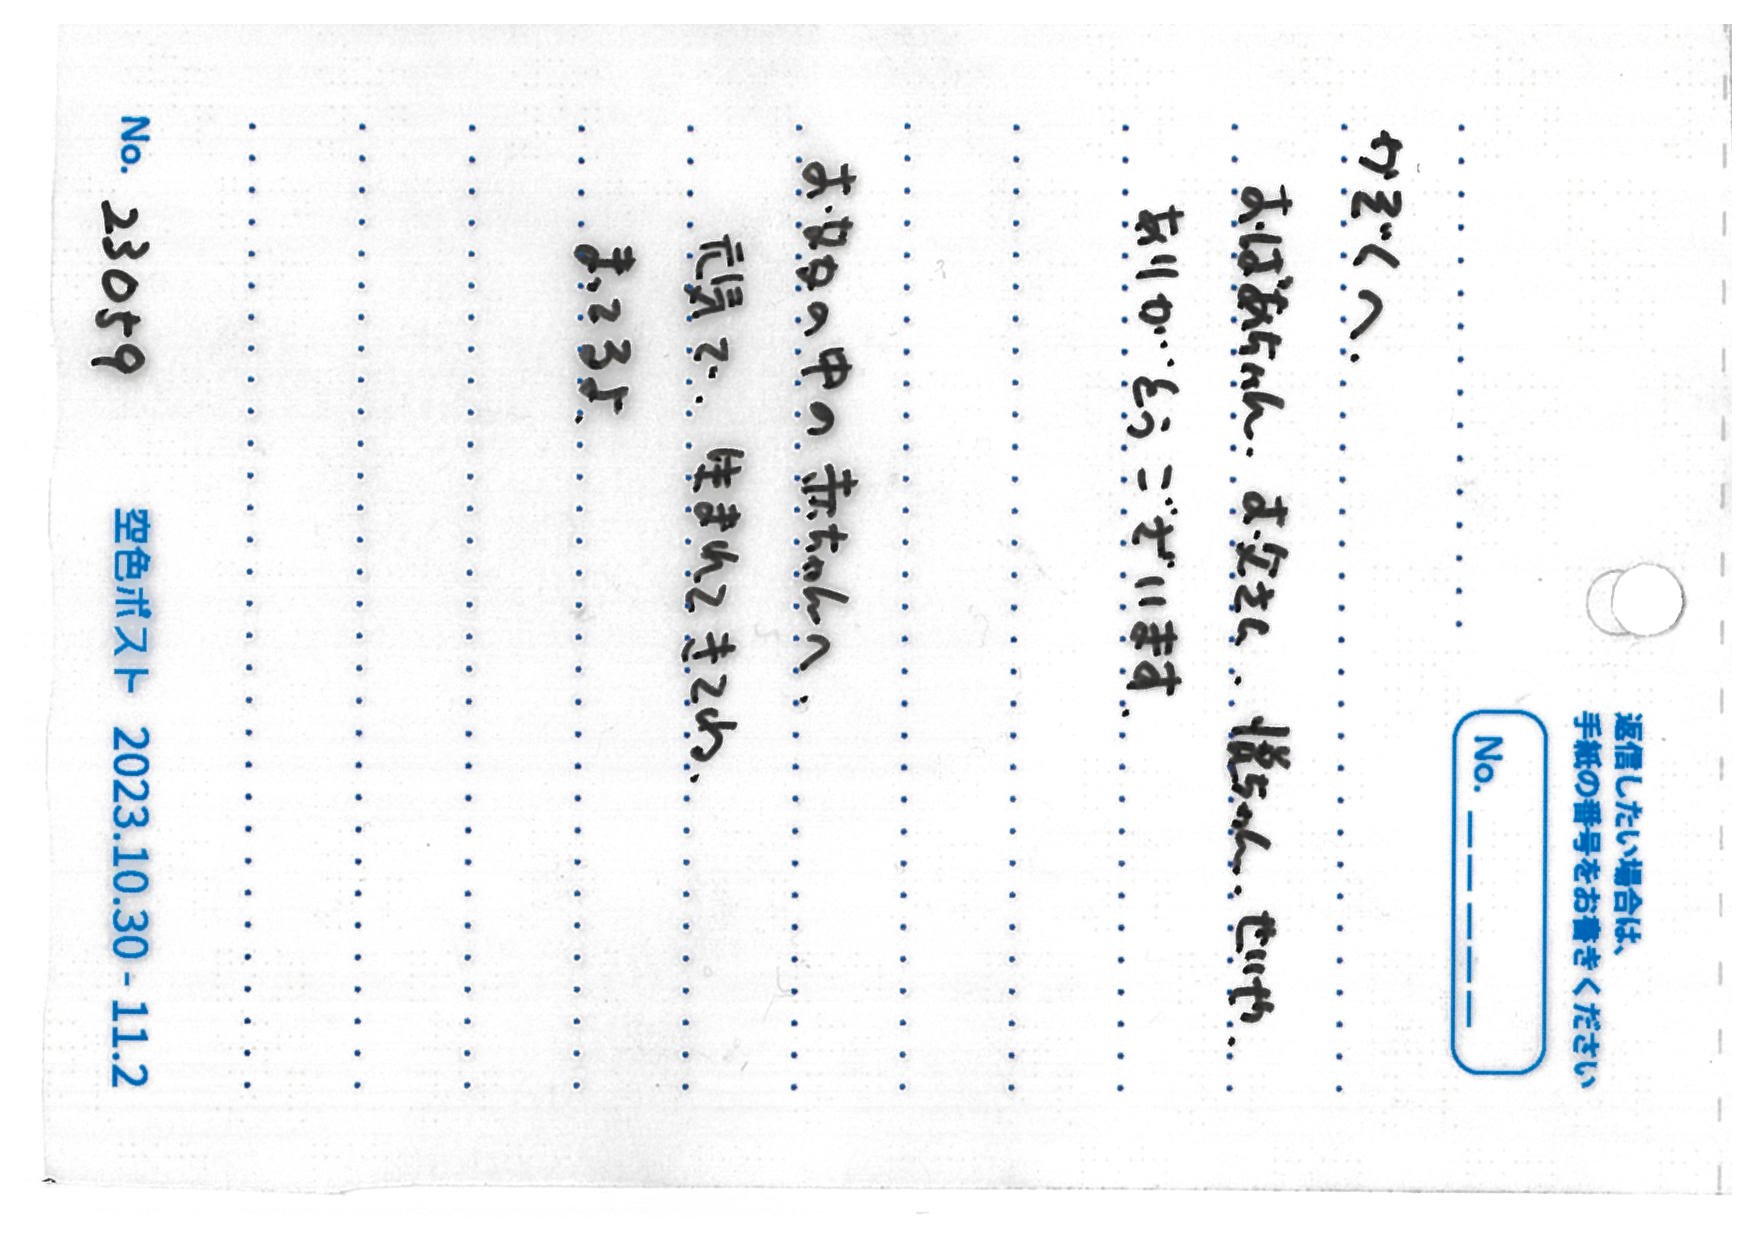 返信したい場合は、
手紙の番号をお書きください
No. _ _ _ _ _
かぞくへ.
おばあちゃん. お父さん. 悦ちゃん. せいや.
ありがとうございます.
お女女の中の赤ちゃんへ.
元気で. 生まれてきてね.
まってるよ.
No. 23059
空色ポスト 2023.10.30 - 11.2